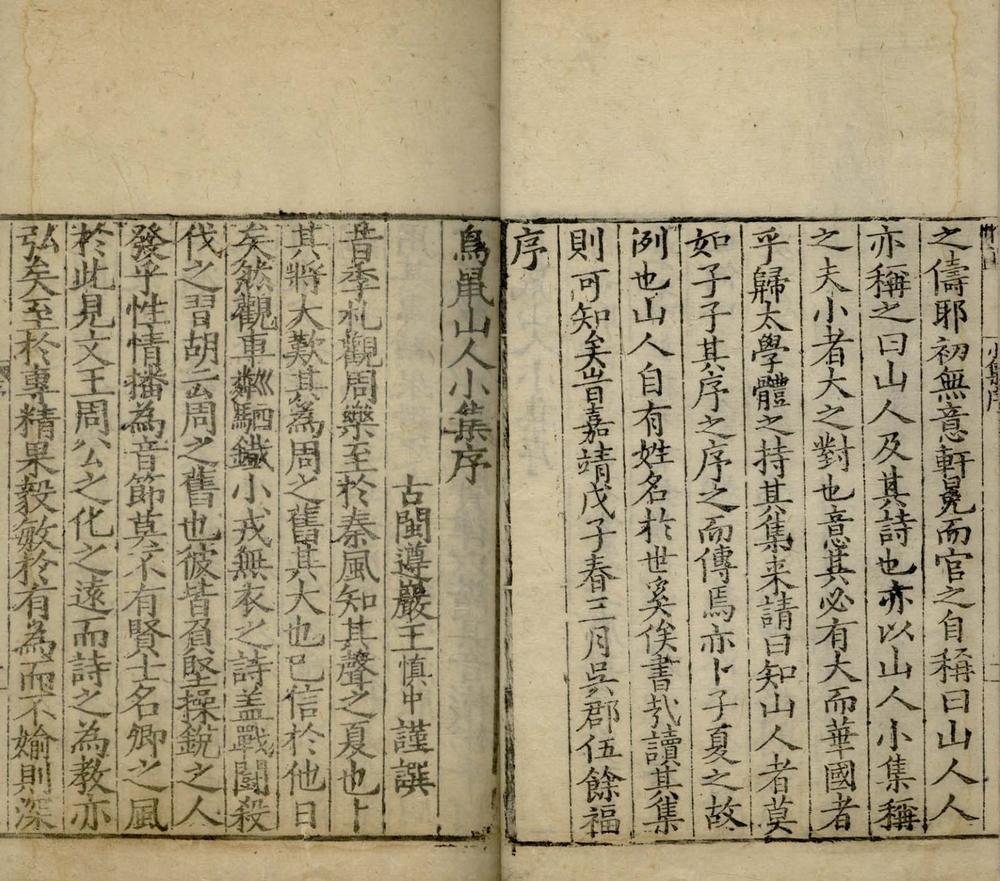 之儔耶初無意軒冕而官之自稱曰山人人
亦稱之曰山人及其詩也亦以山人小集稱
之夫小者大之對也意其必有大而華國者
乎歸太學體之持其集来請曰知山人者莫
如子子其序之序之而傳焉亦卜子夏之故
例也山人自有姓名於世奚俟書㢤讀其集
則可知矣旹嘉靖戊子春三月吳郡伍餘福
序
鳥鼠山人小集序
古閩遵巖王慎中謹譔
昔季札觀周樂至於秦風知其聲之夏也卜
其將大歎其為周之舊其大也已信於他日
矣然觀車鄰駟鐵小戎無衣之詩盖戰鬪殺
伐之習胡云周之舊也彼皆負堅操銳之人
發乎性情播為音節莫不有賢士名卿之風
於此見文王周公之化之遠而詩之為教亦
弘矣至於專精果毅敏於有為而不媮則深
小集序